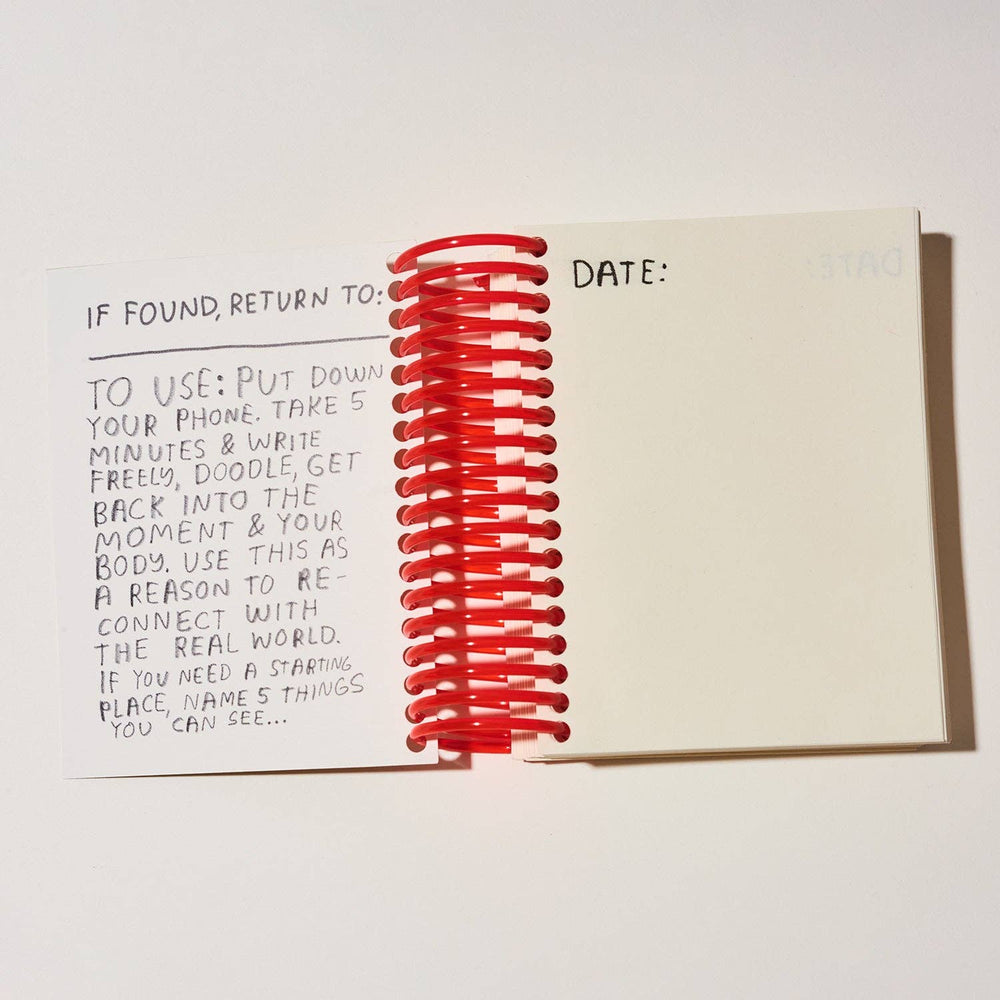 IF FOUND, RETURN TO:
TO USE: PUT DOWN
YOUR PHONE. TAKE 5
MINUTES & WRITE
FREELY, DOODLE, GET
BACK INTO THE
MOMENT & YOUR
BODY. USE THIS AS
A REASON TO RE-
CONNECT WITH
THE REAL WORLD.
IF YOU NEED A STARTING
PLACE, NAME 5 THINGS
YOU CAN SEE...
DATE:
DATE: